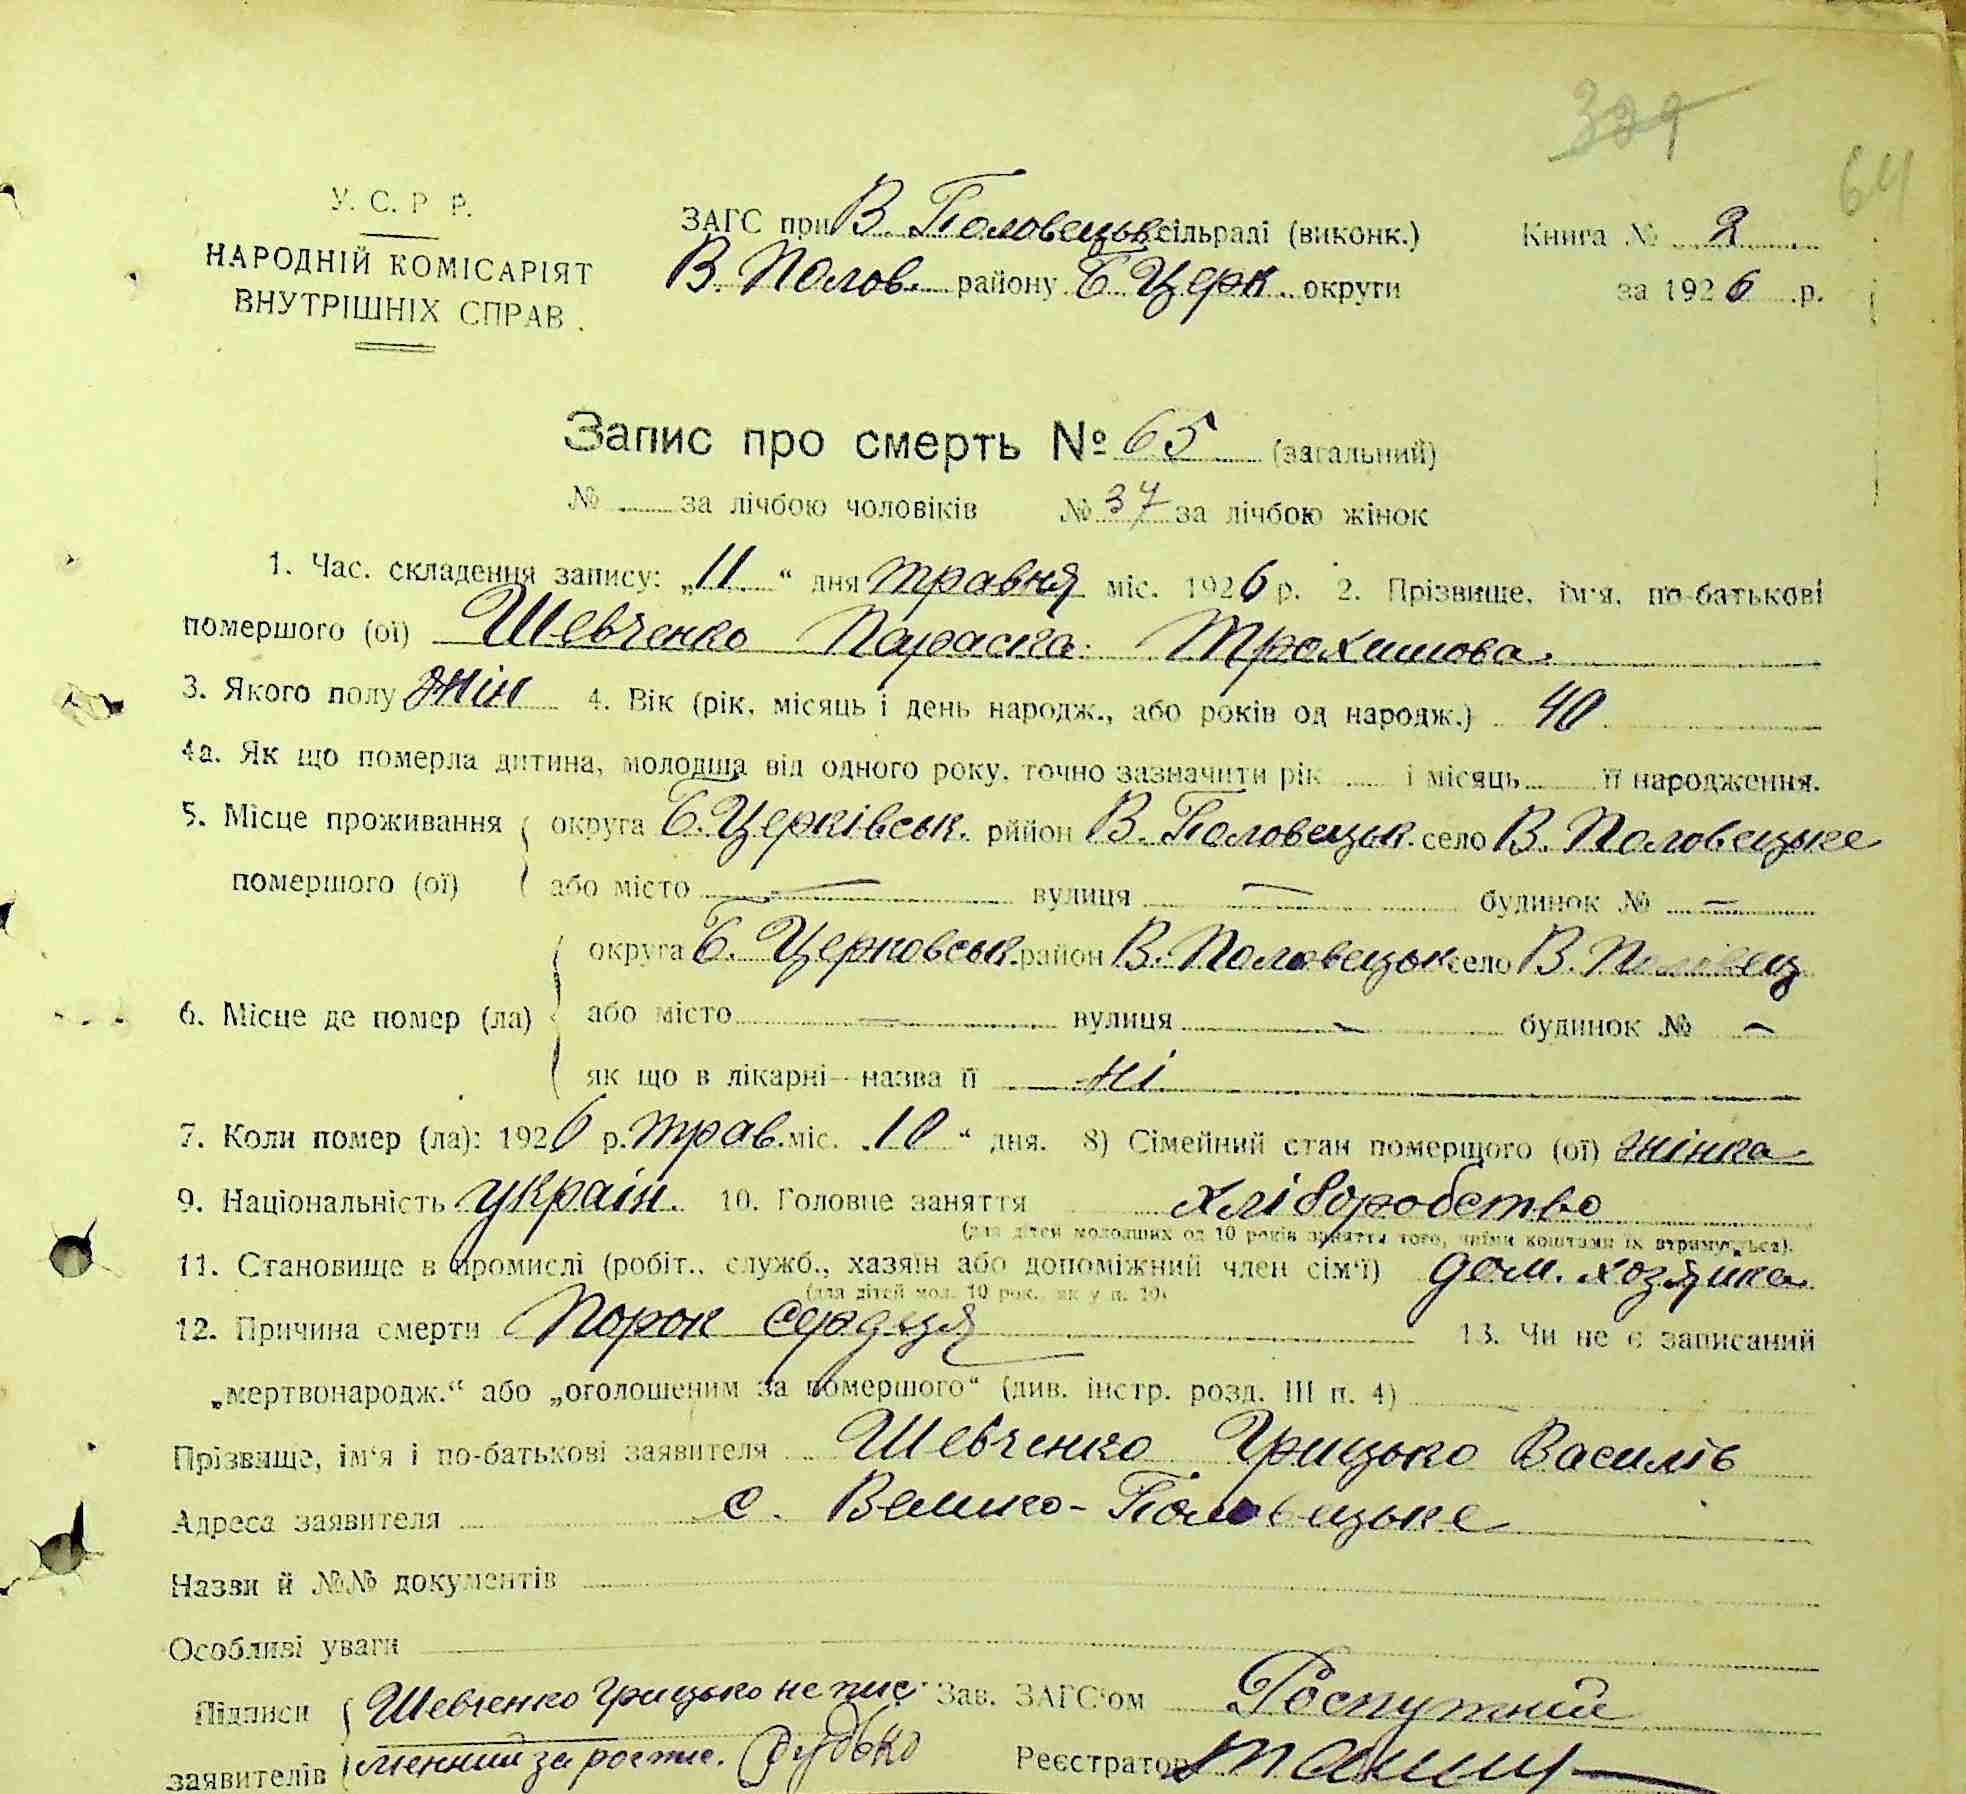 329
64
У. С. Р. Р.
НАРОДНІЙ КОМІСАРІЯТ
ВНУТРІШНІХ СПРАВ.
ЗАГС при В. Половецьк сільраді (виконк.)
В. Полов. району Б Церк. округи
Книга № 2
за 1926 р.
Запис про смерть № 65 (загальний)
№ за лічбою чоловіків № 37 за лічбою жінок
1. Час. складення запису: „11“ дня травня міс. 1926 р. 2. Прізвище, ім'я, по-батькові
помершого (ої) Шевченко Параска Трохимова.
3. Якого полу жін 4. Вік (рік, місяць і день народж., або років од народж.) 40
4а. Як що померла дитина, молодша від одного року, точно зазначити рік і місяць її народження.
5. Місце проживання округа Б. Церківськ. район В. Половецьк. село В. Половецьке
помершого (ої) або місто — вулиця — будинок № —
округа Б. Церковськ. район В. Половецьк село В. Половец
6. Місце де помер (ла) або місто — вулиця — будинок № —
як що в лікарні—назва її ні
7. Коли помер (ла): 1926 р. трав. міс. „10“ дня. 8) Сімейний стан померщого (ої) жінка
9. Національність україн. 10. Головне заняття хліборобство
(для дітей молодших од 10 років заняття того, чиїми коштами їх втримується).
11. Становище в промислі (робіт., служб., хазяїн або допоміжний член сім'ї) дом. хозяйка
(для дітей мол. 10 рок., як у п. 10)
12. Причина смерти Порок сердця 13. Чи не є записаний
„мертвонародж.“ або „оголошеним за помершого“ (див. інстр. розд. III п. 4)
Прізвище, ім'я і по-батькові заявителя Шевченко Грицько Василів
Адреса заявителя с. Велико-Половецьке
Назви й №№ документів
Особливі уваги
Підписи Шевченко Грицько не пис Зав. ЗАГС'ом Роспутний
заявителів менний за
Реєстратор